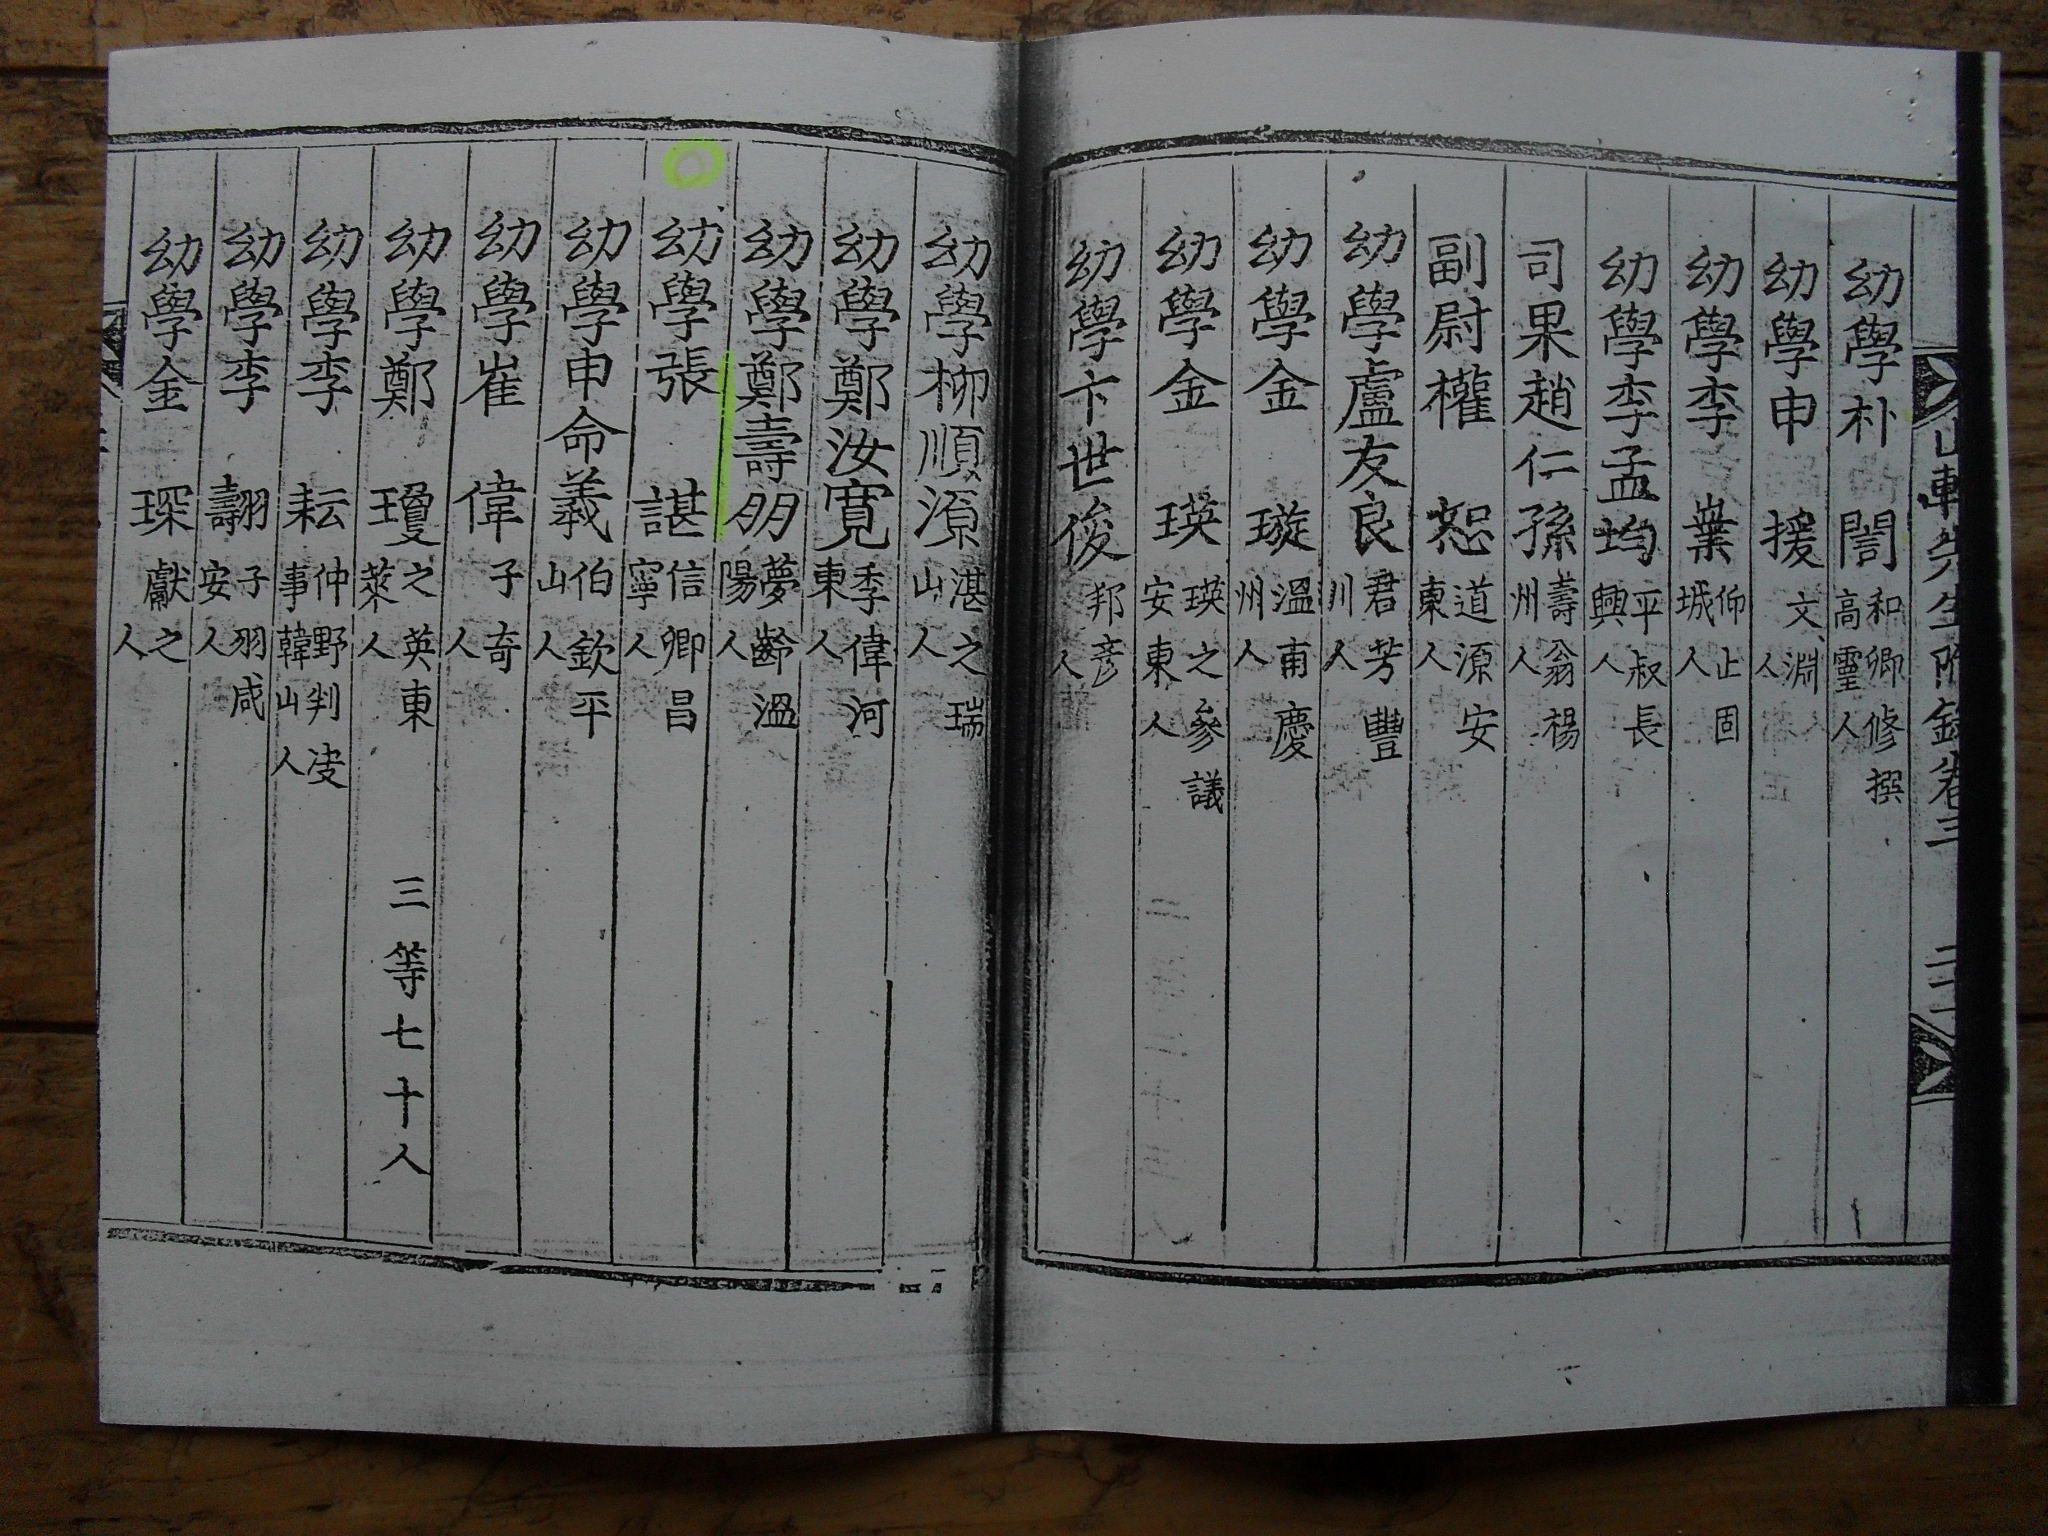 山軒先生附錄卷三
幼學朴 誾 和卿修撰高靈人
幼學申 援 文淵 人
幼學李 業 仰止固城人
幼學李孟均 平叔長興人
司果趙仁孫 壽翁楊州人
副尉權 恕 道源安東人
幼學盧友良 君芳豐川人
幼學金 璇 溫甫慶州人
幼學金 瑛 瑛之參議安東人
幼學卞世俊 邦彦 人
幼學柳順源 湛之瑞山人
幼學鄭汝寬 季偉河東人
幼學鄭壽朋 夢齡溫陽人
幼學張 諶 信卿昌寧人
幼學申命義 伯欽平山人
幼學崔 偉 子奇 人
幼學鄭 瓊 之英東萊人
三等七十人
幼學李 耘 仲野判決事韓山人
幼學李 翿 子羽咸安人
幼學金 琛 獻之 人